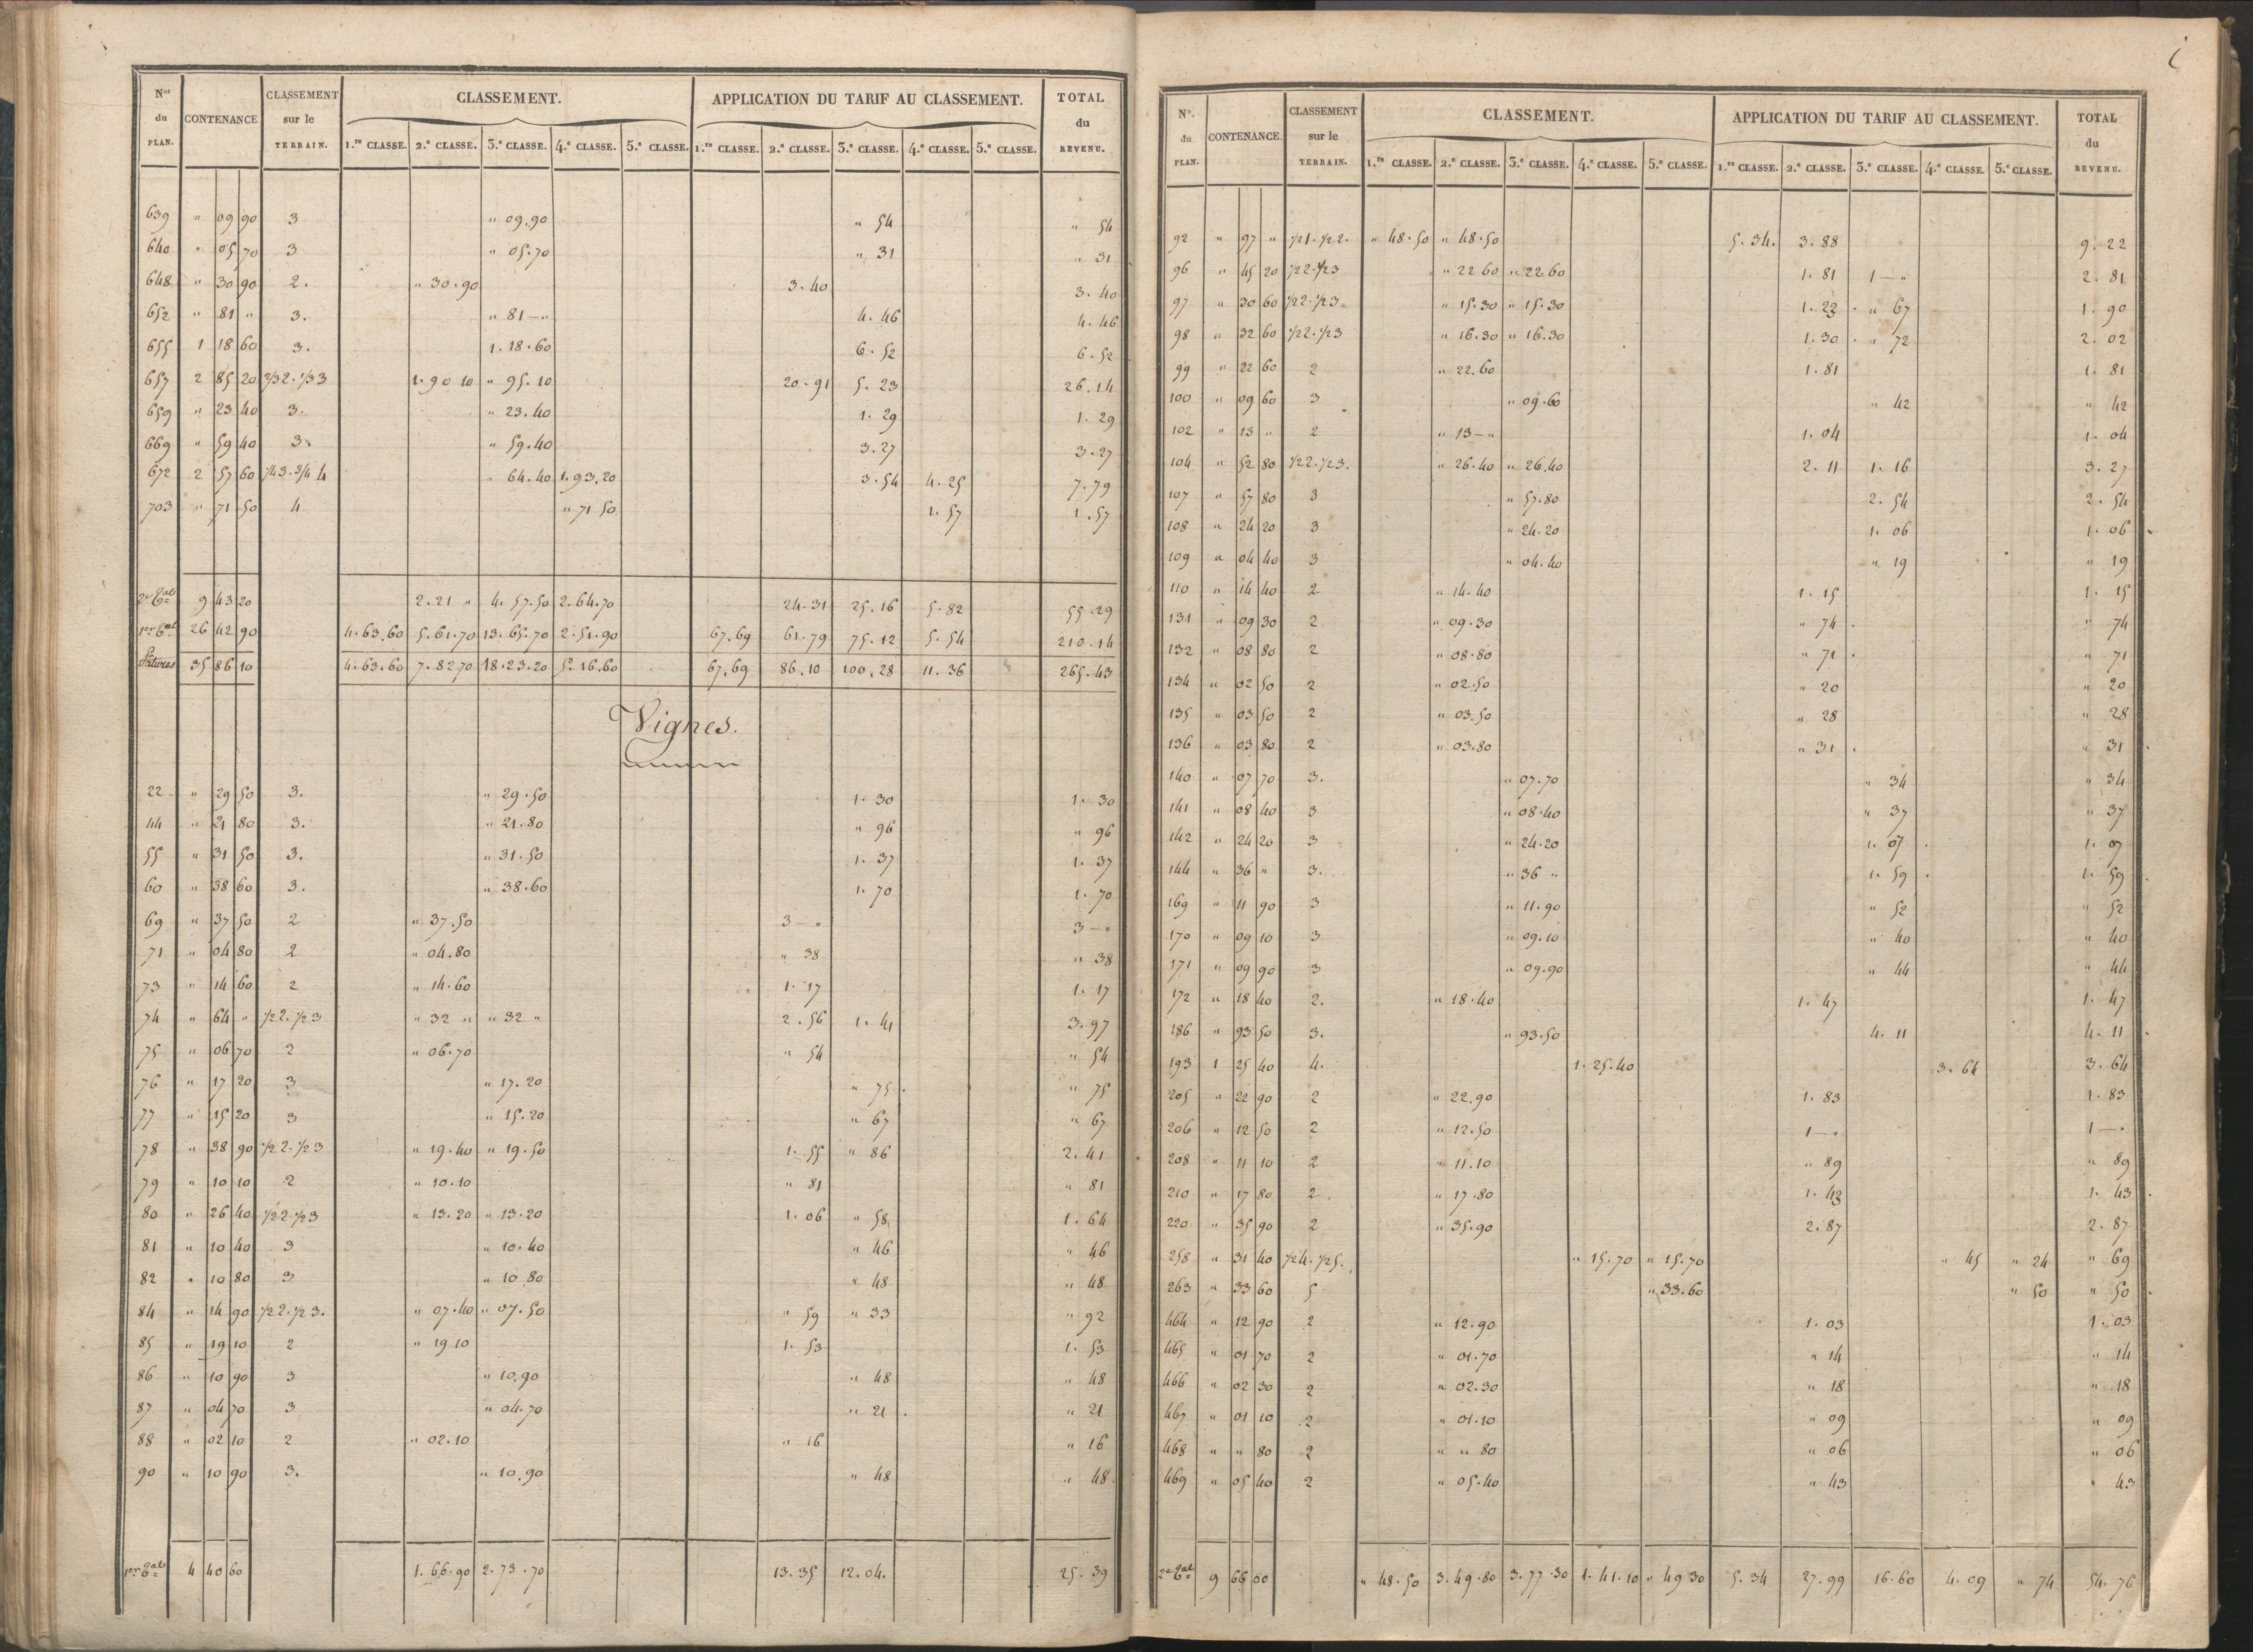 Nos du PLAN. | CONTENANCE | CLASSEMENT sur le TERRAIN. | CLASSEMENT. | APPLICATION DU TARIF AU CLASSEMENT. | TOTAL du REVENU.
1.re CLASSE. | 2.e CLASSE. | 3.e CLASSE. | 4.e CLASSE. | 5.e CLASSE. | 1.re CLASSE. | 2.e CLASSE. | 3.e CLASSE. | 4.e CLASSE. | 5.e CLASSE.
639 " 09 90 3 " 09.90 " 54 " 54
640 " 05 70 3 " 05.70 " 31 " 31
648 " 30 90 2. " 30.90 3.40 3.40
652 " 81 " 3. " 81 — " 4.46 4.46
655 1 18 60 3. 1.18.60 6.52 6.52
657 2 85 20 2/3 2. 1/3 3 1.90 10 " 95.10 20.91 5.23 26.14
659 " 23 40 3. " 23.40 1.29 1.29
669 " 59 40 3. " 59.40 3.27 3.27
672 2 57 60 1/4 3. 3/4 4 " 64.40 1.93.20 3.54 4.25 7.79
703 " 71 50 4 " 71 50 1.57 1.57
2e Cal 9 43 20 2.21 " 4.57.50 2.64.70 24.31 25.16 5.82 55.29
1er Cal 26 42 90 4.63.60 5.61.70 13.65.70 2.51.90 67.69 61.79 75.12 5.54 210.14
Patures 35 86 10 4.63.60 7.82 70 18.23.20 5.16.60 67.69 86.10 100.28 11.36 265.43
Vignes.
22 " 29 50 3. " 29.50 1.30 1.30
44 " 21 80 3. " 21.80 " 96 " 96
55 " 31 50 3. " 31.50 1.37 1.37
60 " 38 60 3. " 38.60 1.70 1.70
69 " 37 50 2 " 37.50 3 — " 3 — "
71 " 04 80 2 " 04.80 " 38 " 38
73 " 14 60 2 " 14.60 1.17 1.17
74 " 64 " 1/2 2. 1/2 3 " 32 " " 32 " 2.56 1.41 3.97
75 " 06 70 2 " 06.70 " 54 " 54
76 " 17 20 3 " 17.20 " 75. " 75
77 " 15 20 3 " 15.20 " 67 " 67
78 " 38 90 1/2 2. 1/2 3 " 19.40 " 19.50 1.55 " 86 2.41
79 " 10 10 2 " 10.10 " 81 " 81
80 " 26 40 1/2 2 1/2 3 " 13.20 " 13.20 1.06 " 58 1.64
81 " 10 40 3 " 10.40 " 46 " 46
82 " 10 80 3 " 10.80 " 48 " 48
84 " 14 90 1/2 2. 1/2 3. " 07.40 " 07.50 " 59 " 33 " 92
85 " 19 10 2 " 19 10 1.53 1.53
86 " 10 90 3 " 10.90 " 48 " 48
87 " 04 70 3 " 04.70 " 21. " 21
88 " 02 10 2 " 02.10 " 16 " 16
90 " 10 90 3. " 10.90 " 48 " 48
1er Cal 4 40 60 1.66.90 2.73.70 13.35 12.04. 25.39
N.o du PLAN. | CONTENANCE. | CLASSEMENT sur le TERRAIN. | CLASSEMENT. | APPLICATION DU TARIF AU CLASSEMENT. | TOTAL du REVENU.
1.re CLASSE. | 2.e CLASSE. | 3.e CLASSE. | 4.e CLASSE. | 5.e CLASSE. | 1.re CLASSE. | 2.e CLASSE. | 3.e CLASSE. | 4.e CLASSE. | 5.e CLASSE.
92 " 97 " 1/2 1. 1/2 2. " 48.50 " 48.50 5.34. 3.88 9.22
96 " 45 20 1/2 2. 1/2 3 " 22 60 " 22 60 1.81 1 — " 2.81
97 " 30 60 1/2 2. 1/2 3 " 15.30 " 15.30 1.23 " 67 1.90
98 " 32 60 1/2 2. 1/2 3 " 16.30 " 16.30 1.30 " 72 2.02
99 " 22 60 2 " 22.60 1.81 1.81
100 " 09 60 3 " 09.60 " 42 " 42
102 " 13 " 2 " 13 — " 1.04 1.04
104 " 52 80 1/2 2. 1/2 3. " 26.40 " 26.40 2.11 1.16 3.27
107 " 57 80 3 " 57.80 2.54 2.54
108 " 24 20 3 " 24.20 1.06 1.06
109 " 04 40 3 " 04.40 " 19 " 19
110 " 14 40 2 " 14.40 1.15 1.15
131 " 09 30 2 " 09.30 " 74. " 74
132 " 08 80 2 " 08.80 " 71. " 71
134 " 02 50 2 " 02.50 " 20 " 20
135 " 03 50 2 " 03.50 " 28 " 28
136 " 03 80 2 " 03.80 " 31. " 31
140 " 07 70 3. " 07.70 " 34 " 34
141 " 08 40 3 " 08.40 " 37 " 37
142 " 24 20 3 " 24.20 1.07. 1.07
144 " 36 " 3. " 36 " 1.59. 1.59
169 " 11 90 3 " 11.90 " 52 " 52
170 " 09 10 3 " 09.10 " 40 " 40
171 " 09 90 3 " 09.90 " 44 " 44
172 " 18 40 2. " 18.40 1.47 1.47
186 " 93 50 3. " 93.50 4.11 4.11
193 1 25 40 4. 1.25.40 3.64 3.64
205 " 22 90 2 " 22.90 1.83 1.83
206 " 12 50 2 " 12.50 1 — " 1 — "
208 " 11 10 2 " 11.10 " 89 " 89
210 " 17 80 2 " 17.80 1.43 1.43
220 " 35 90 2 " 35.90 2.87 2.87
258 " 31 40 1/2 4. 1/2 5. " 15.70 " 15.70 " 45 " 24 " 69
263 " 33 60 5 " 33.60 " 50 " 50
464 " 12 90 2 " 12.90 1.03 1.03
465 " 01 70 2 " 01.70 " 14 " 14
466 " 02 30 2 " 02.30 " 18 " 18
467 " 01 10 2 " 01.10 " 09 " 09
468 " " 80 2 " " 80 " 06 " 06
469 " 05 40 2 " 05.40 " 43 " 43
2e Cal 9 66 00 " 48.50 3.49.80 3.77.30 1.41.10 " 49 30 5.34 27.99 16.60 4.09 " 74 54.76